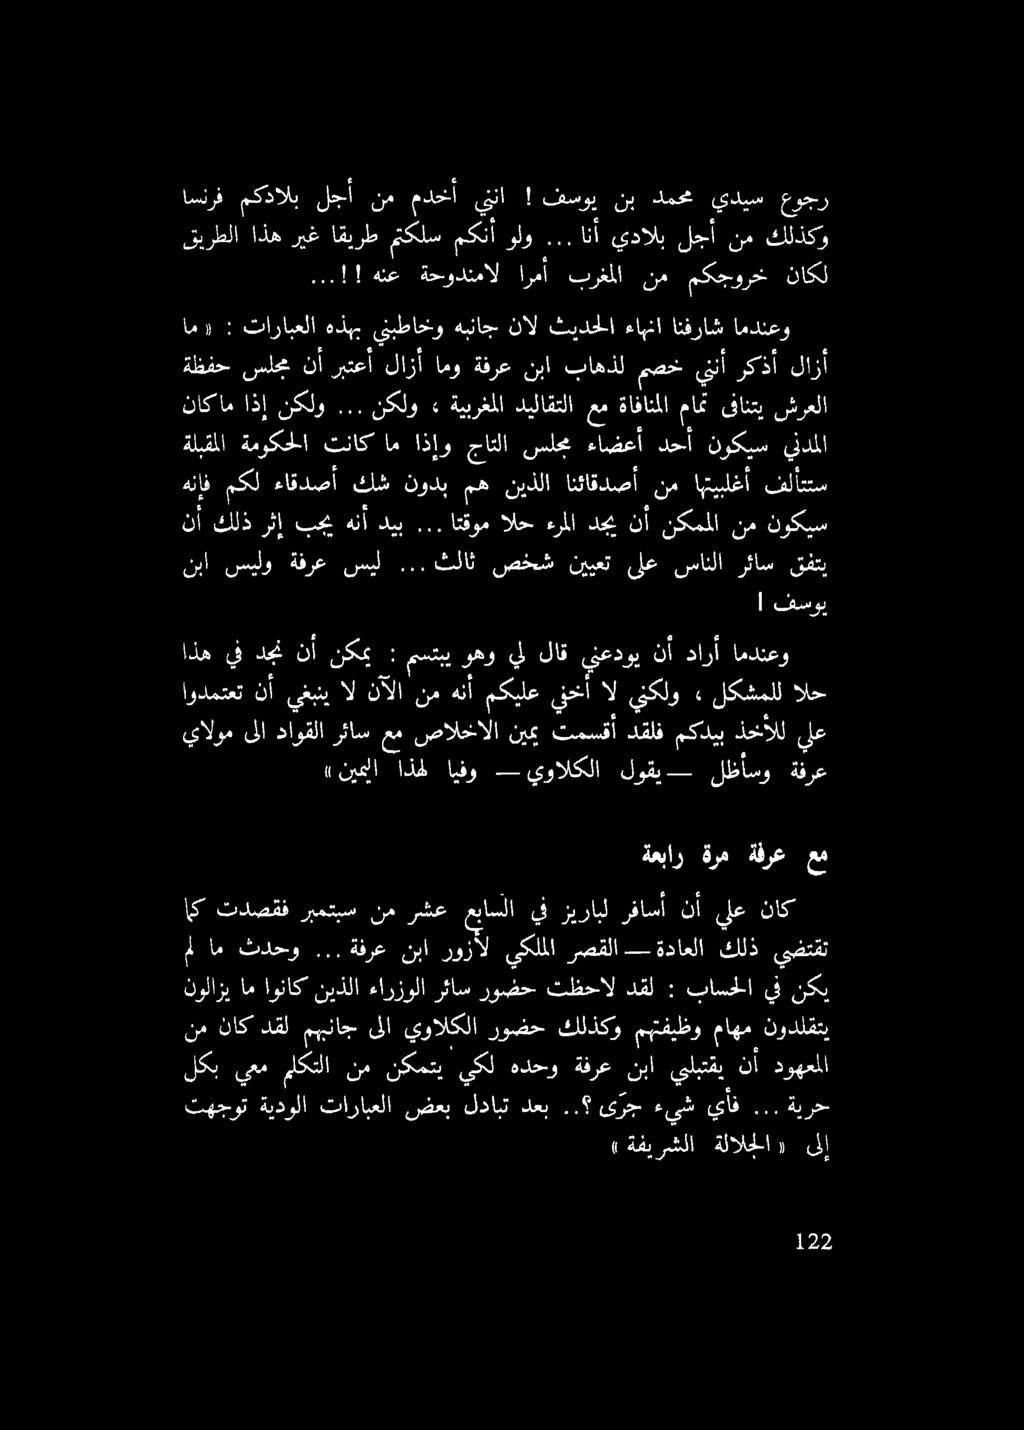 رجوع سيدي محمد بن يوسف ! انني أخدم من أجل بلادكم فرنسا
وكذلك من أجل بلادي أنا ... ولو أنكم سلكتم طريقا غير هذا الطريق
لكان خروجكم من المغرب أمرا لامندوحة عنه ! ! ...
وعندما شارفنا انهاء الحديث لان جانبه وخاطبني بهذه العبارات : « ما
أزال أذكر أنني خصم لذهاب ابن عرفة وما أزال أعتبر أن مجلس حفظة
العرش يتنافى تمام المنافاة مع التقاليد المغربية ، ولكن ... ولكن إذا ماكان
المدني سيكون أحد أعضاء مجلس التاج وإذا ما كانت الحكومة المقبلة
ستتألف أغلبيتها من أصدقائنا الذين هم بدون شك أصدقاء لكم فإنه
سيكون من الممكن أن يجد المرء حلا موقتا ... بيد أنه يجب إثر ذلك أن
يتفق سائر الناس على تعيين شخص ثالث ... ليس عرفة وليس ابن
يوسف !
وعندما أراد أن يودعني قال لي وهو يبتسم : يمكن أن نجد في هذا
حلا للمشكل ، ولكني لا أخفي عليكم أنه من الآن لا ينبغي أن تعتمدوا
علي للأخذ بيدكم فلقد أقسمت يمين الاخلاص مع سائر القواد الى مولاي
عرفة وسأظل — يقول الكلاوي — وفيا لهذا اليمين »
مع عرفة مرة رابعة
كان علي أن أسافر لباريز في السابع عشر من سبتمبر فقصدت كما
تقتضي ذلك العادة — القصر الملكي لأزور ابن عرفة ... وحدث ما لم
يكن في الحساب : لقد لاحظت حضور سائر الوزراء الذين كانوا ما يزالون
يتقلدون مهام وظيفتهم وكذلك حضور الكلاوي الى جانبهم لقد كان من
المعهود أن يقتبلني ابن عرفة وحده لكي يتمكن من التكلم معي بكل
حرية ... فأي شيء جرى ؟.. بعد تبادل بعض العبارات الودية توجهت
إلى « الجلالة الشريفة »
122